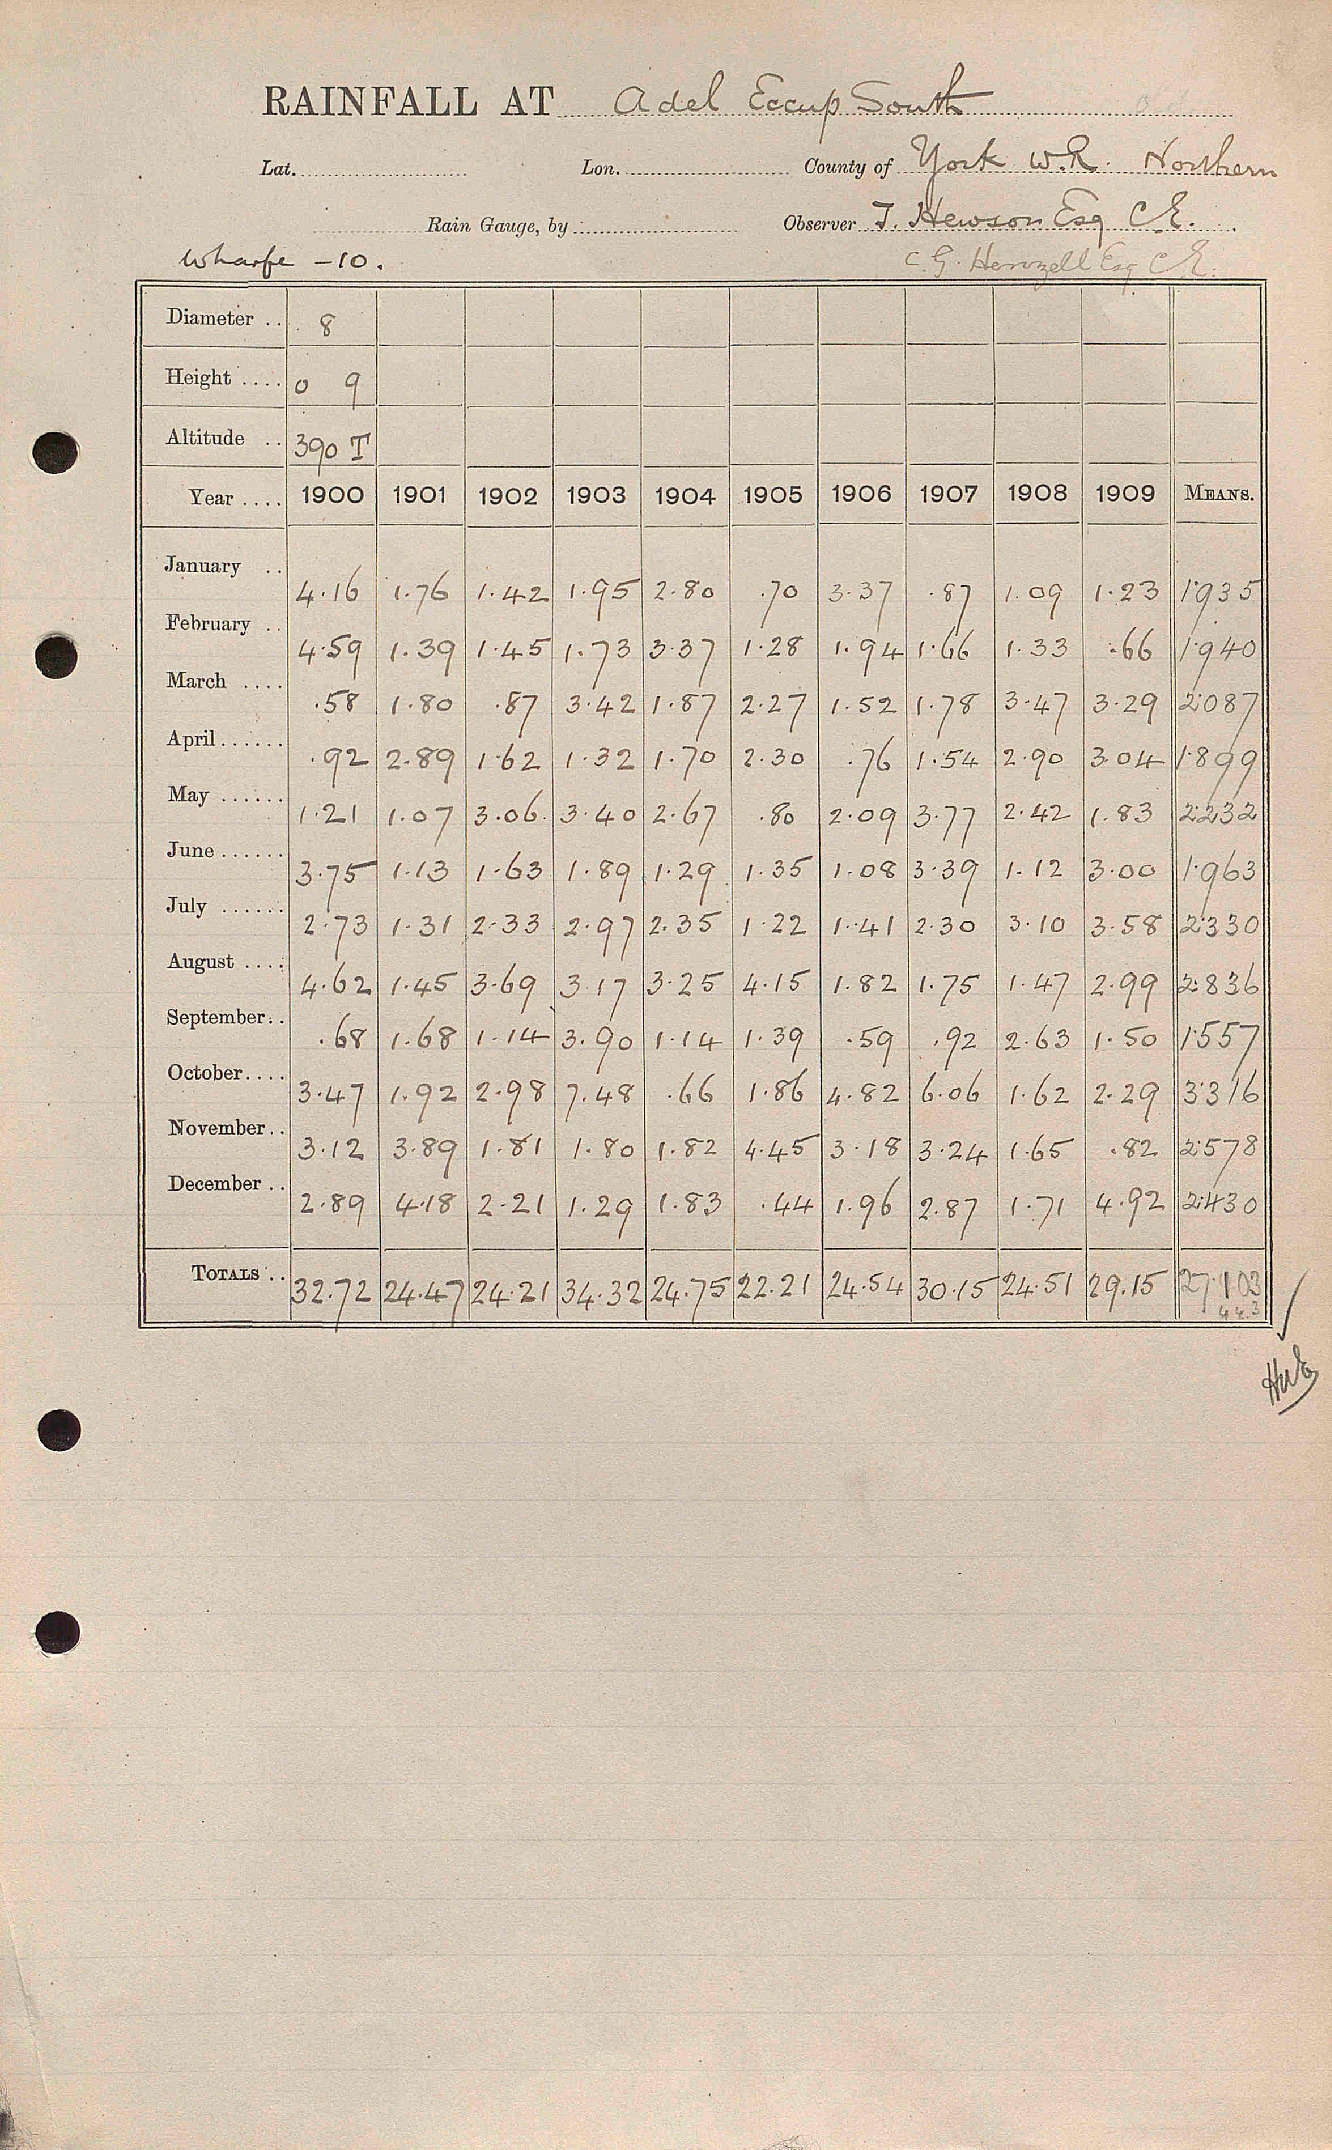 RAINFALL AT Adel Eccup South
Lat. Lon. County of York W.R. Northern
Rain Gauge, by Observer T. Hewson Esq C.E.
Wharfe - 10. C. G. Henzell Esq C.E.
Diameter .. 8
Height .... 0 9
Altitude .. 390 T
Year .... 1900 1901 1902 1903 1904 1905 1906 1907 1908 1909 MEANS.
January .. 4.16 1.76 1.42 1.95 2.80 .70 3.37 .87 1.09 1.23 1.935
February .. 4.59 1.39 1.45 1.73 3.37 1.28 1.94 1.66 1.33 .66 1.940
March .... .58 1.80 .87 3.42 1.87 2.27 1.52 1.78 3.47 3.29 2.087
April ...... .92 2.89 1.62 1.32 1.70 2.30 .76 1.54 2.90 3.04 1.899
May ...... 1.21 1.07 3.06 3.40 2.67 .80 2.09 3.77 2.42 1.83 2.232
June ...... 3.75 1.13 1.63 1.89 1.29 1.35 1.08 3.39 1.12 3.00 1.963
July ...... 2.73 1.31 2.33 2.97 2.35 1.22 1.41 2.30 3.10 3.58 2.330
August .... 4.62 1.45 3.69 3.17 3.25 4.15 1.82 1.75 1.47 2.99 2.836
September .. .68 1.68 1.14 3.90 1.14 1.39 .59 .92 2.63 1.50 1.557
October .... 3.47 1.92 2.98 7.48 .66 1.86 4.82 6.06 1.62 2.29 3.316
November .. 3.12 3.89 1.81 1.80 1.82 4.45 3.18 3.24 1.65 .82 2.578
December .. 2.89 4.18 2.21 1.29 1.83 .44 1.96 2.87 1.71 4.92 2.430
TOTALS .. 32.72 24.47 24.21 34.32 24.75 22.21 24.54 30.15 24.51 29.15 27.103